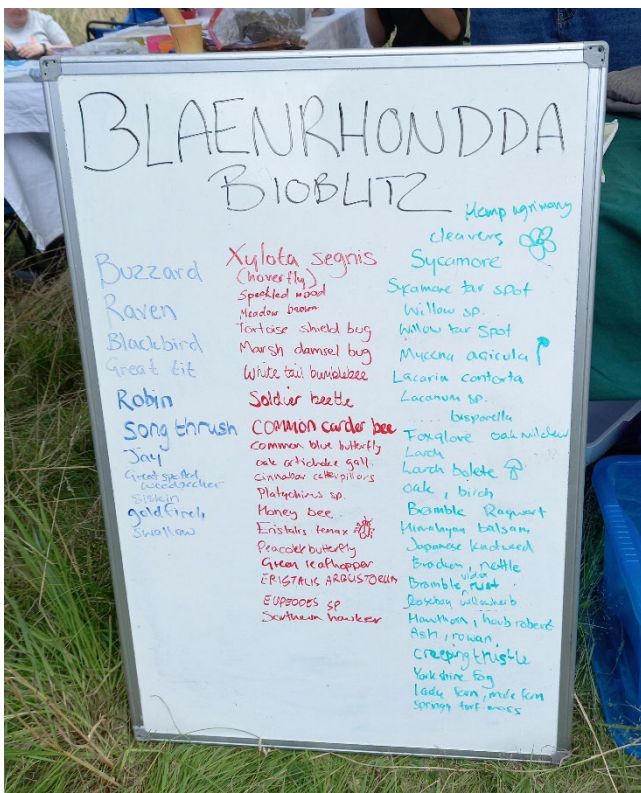 BLAENRHONDDA
BIOBLITZ
Buzzard
Raven
Blackbird
Great tit
Robin
Song thrush
Jay
Great spotted
woodpecker
Siskin
goldfinch
swallow
Xylota segnis
(hoverfly)
Speckled wood
Meadow brown
Tortoise shield bug
Marsh damsel bug
White tail bumblebee
Soldier beetle
COMMON carder bee
common blue butterfly
oak artichoke gall
cinnabar caterpillars
Platycheirus sp.
Honey bee
Eristalis tenax
Peacock butterfly
Green leafhopper
ERISTALIS ARBUSTORUM
EUPEODES SP
Southern hawker
Hemp agrimony
cleavers
Sycamore
Sycamore tar spot
Willow sp.
Willow tar spot
Mycena acicula
Lacaria contorta
Lacanum sp.
bisporella
Foxglove oak mildew
Larch
Larch bolete
oak, birch
Bramble Ragwort
Himalayan balsam
Japanese knotweed
Bracken, nettle
Bramble rust
Rosebay willowherb
Hawthorn, herb robert
Ash, rowan
creeping thistle
Yorkshire fog
lady fern, male fern
Springy turf moss